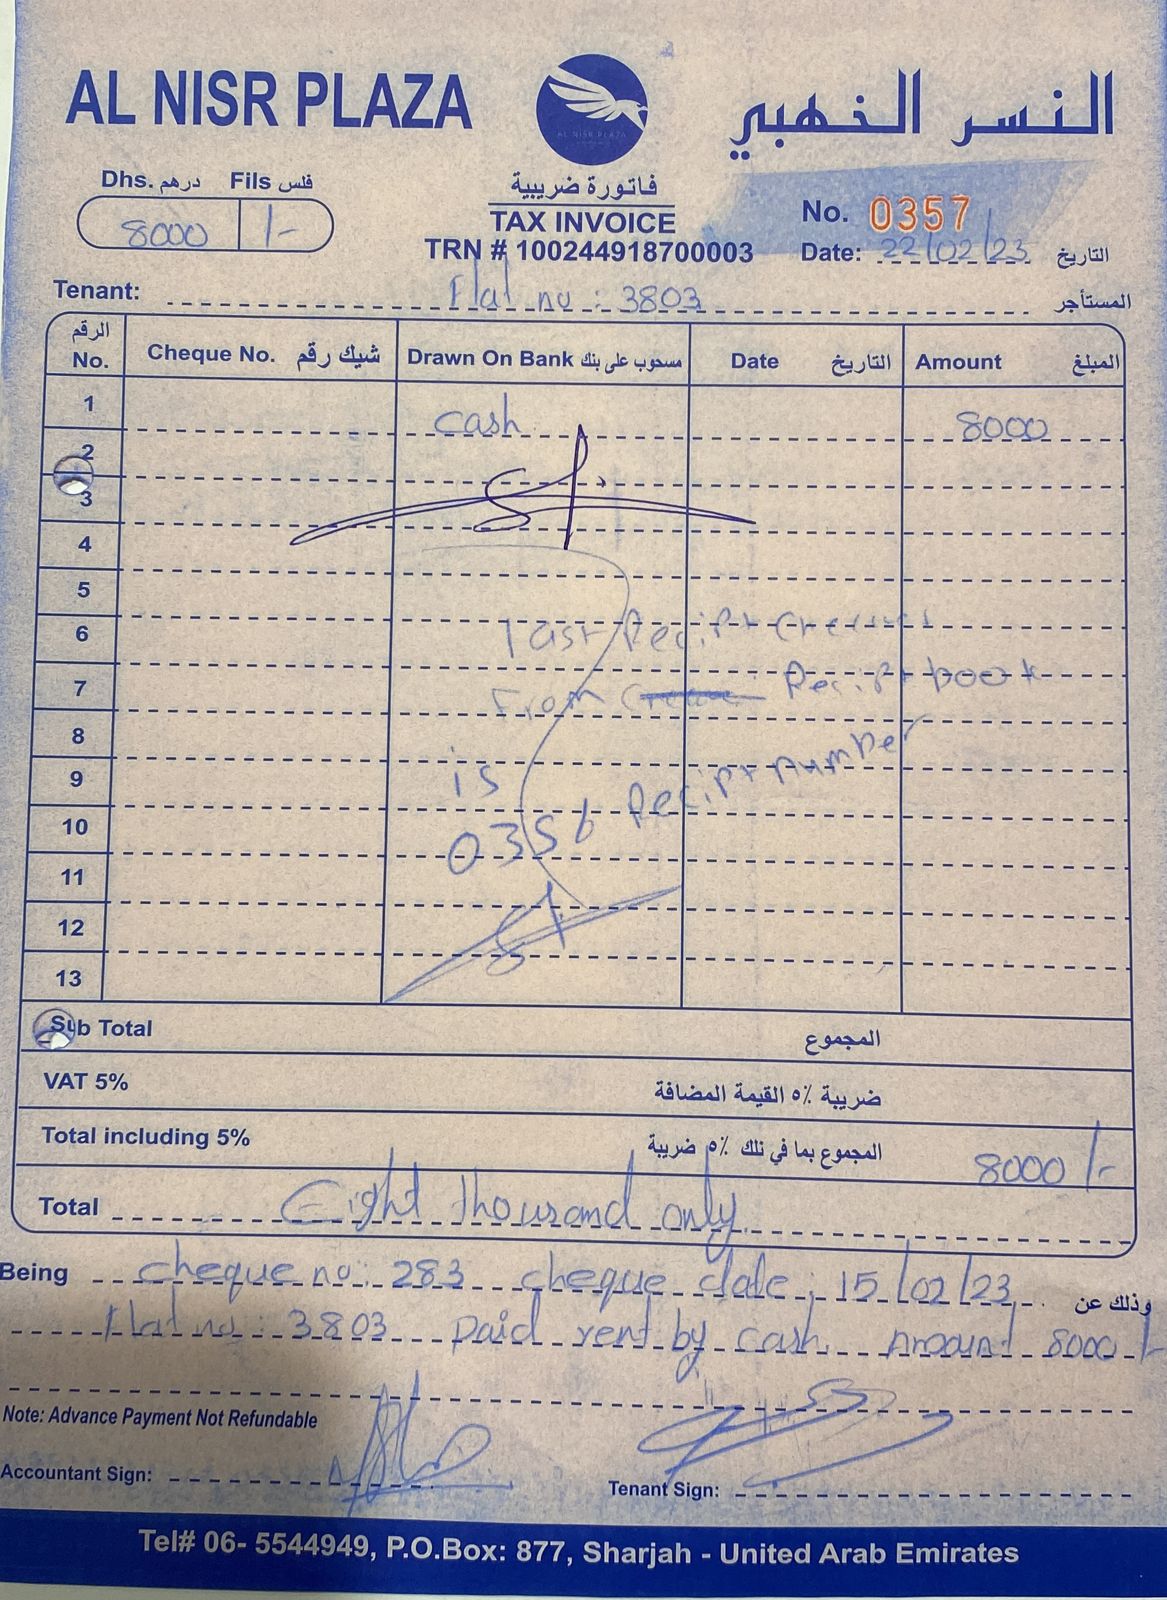 AL NISR PLAZA
النسر الخهبي
AL NISR PLAZA
Dhs. درهم Fils فلس
8000 /-
فاتورة ضريبية
TAX INVOICE
TRN # 100244918700003
No. 0357
Date: 22/02/23 التاريخ
Tenant: Flat no : 3803 المستأجر
الرقم No. Cheque No. شيك رقم Drawn On Bank مسحوب على بنك Date التاريخ Amount المبلغ
1 cash 8000
2
3
4
5
6 Last Recipt
7 From Recipt book
8
9 is Recipt number
10 0356
11
12
13
Sub Total المجموع
VAT 5% ضريبة ٥٪ القيمة المضافة
Total including 5% المجموع بما في نلك ٥٪ ضريبة 8000/-
Total Eight thousand only
Being cheque no: 283 cheque date: 15/02/23 وذلك عن
Flat no : 3803 paid rent by cash Amount 8000/-
Note: Advance Payment Not Refundable
Accountant Sign:
Tenant Sign:
Tel# 06- 5544949, P.O.Box: 877, Sharjah - United Arab Emirates